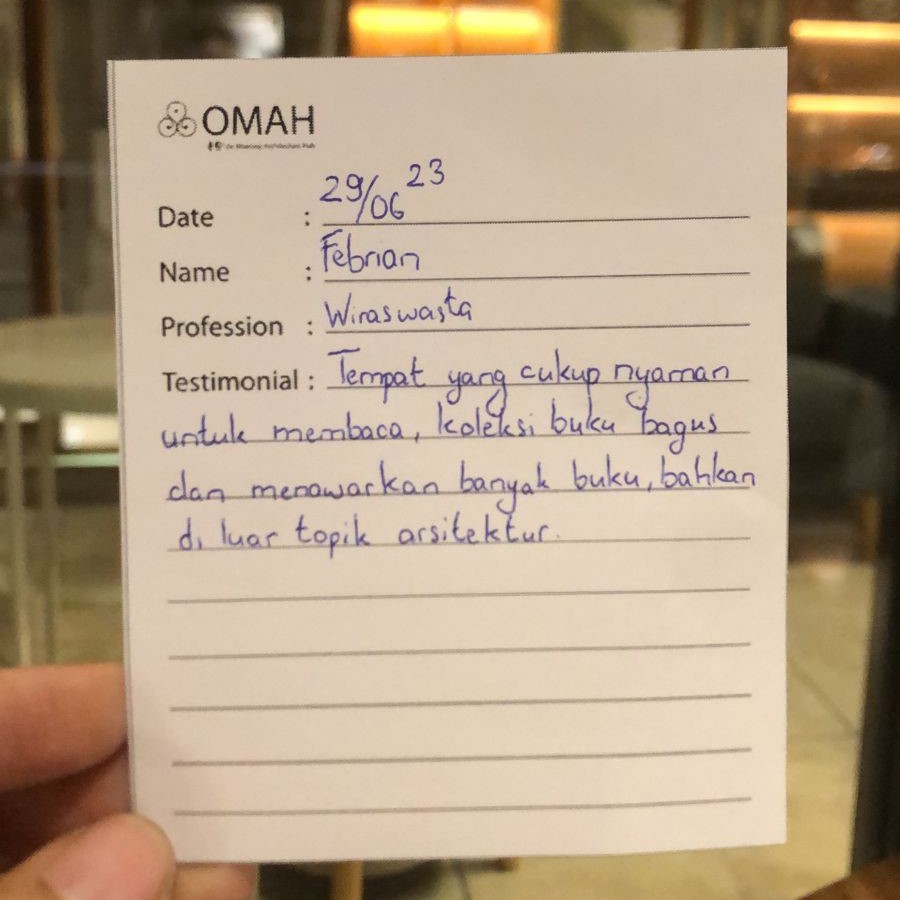 OMAH
Date : 29/06 23
Name : Febrian
Profession : Wiraswasta
Testimonial : Tempat yang cukup nyaman
untuk membaca, koleksi buku bagus
dan menawarkan banyak buku, bahkan
di luar topik arsitektur.